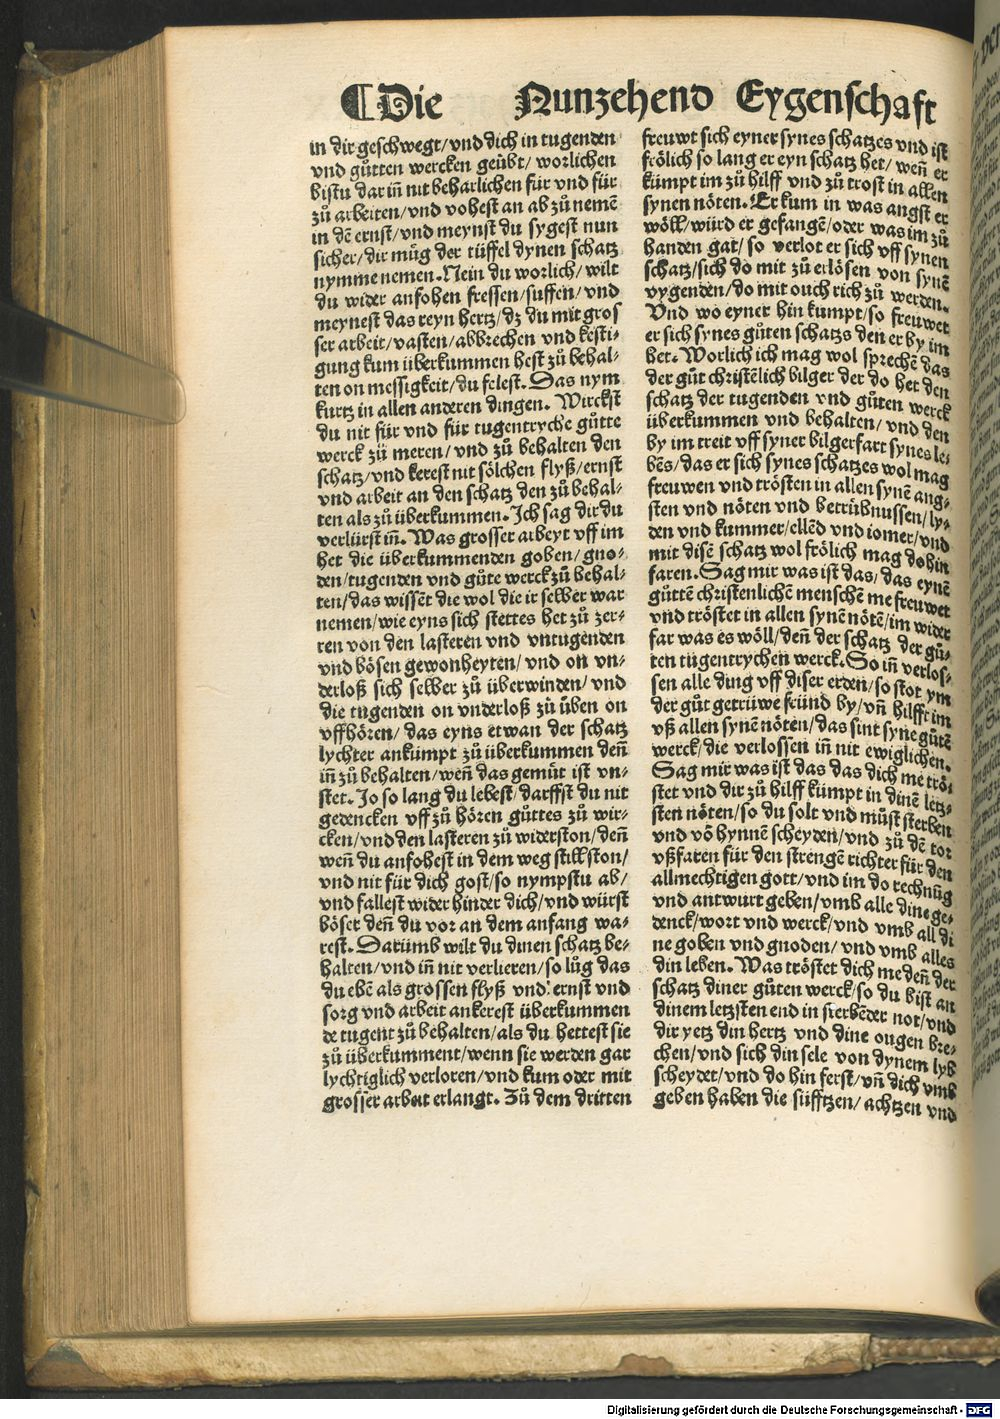 ⸿Die Nunzehend Eygenschafft
in dir geschwegt/vnd dich in tugenden
vnd gůtten wercken geübt/ worlichen
bistu dar iñ nit beharlichen für vnd für
zů arbeiten/vnd vohest an ab zů nemē
in dē ernst/vnd meynst du sygest nun
sicher/dir műg der tüffel dynen schatz
nymme nemen. Nein du worlich/ wilt
du wider anfohen fressen/suffen/vnd
meynest das reyn hertz/dz du mit gros
ser arbeit/vasten/abbrechen vnd kesti-
gung kum überkummen hest zů behal-
ten on messigkeit/du felest. Das nym
kurtz in allen anderen dingen. Wirckst
du nit für vnd für tugentryche gůtte
werck zů meren/vnd zů behalten den
schatz/vnd kerest nit sölchen flyß/ernst
vnd arbeit an den schatz den zů behal-
ten als zů überkummen. Ich sag dir du
verlürst iñ. Was grosser arbeyt vff im
het die überkummenden goben/gno-
den/tugenden vnd gůte werck zů behal-
ten/das wissēt die wol die ir selber war
nemen/wie eyns sich stettes het zů zer-
ren von den lasteren vnd vntugenden
vnd bösen gewonheyten/vnd on vn-
derloß sich selber zů überwinden/vnd
die tugenden on vnderloß zů üben on
vffhören/das eyns etwan der schatz
lychter ankumpt zů überkummen deñ
iñ zů behalten/weñ das gemüt ist vn-
stet. Jo so lang du lebest/darffst du nit
gedencken vff zů hören gůttes zů wir-
cken/vnd den lasteren zů widerston/deñ
weñ du anfohest in dem weg stillston/
vnd nit für dich gost/so nympstu ab/
vnd fallest wider hinder dich/vnd würst
böser deñ du vor an dem anfang wa-
rest. Darumb wilt du dinen schatz be-
halten/vnd iñ nit verlieren/so lůg das
du ebē als grossen flyß vnd ernst vnd
sorg vnd arbeit ankerest überkummen
de tugent zů behalten/als du hettest sie
zů überkumment/wenn sie werden gar
lychtiglich verloren/vnd kum oder mit
grosser arbeit erlangt. Zů dem dritten
freuwt sich eyner synes schatzes vnd ist
frölich so lang er eyn schatz het/weñ er
kümpt im zů hilff vnd zů trost in allen
synen nöten. Er kum in was angst er
wöll/würd er gefangē/oder was im zů
handen gat/so verlot er sich vff synen
schatz/sich do mit zů erlösen von synē
vygenden/do mit ouch rich zů werden.
Vnd wo eyner hin kumpt/so freuwet
er sich synes gůten schatzs den er by im
het. Worlich ich mag wol sprechē das
der gůt christēlich bilger der do het den
schatz der tugenden vnd gůten werck
überkummen vnd behalten/vnd den
by im treit vff syner bilgerfart synes le-
bēs/das er sich synes schatzes wol mag
freuwen vnd trösten in allen synē ang-
sten vnd nöten vnd betrübnussen/ly-
den vnd kummer/ellēd vnd iomer/vnd
mit disē schatz wol frölich mag do hin
faren. Sag mir was ist das/das eynē
gůttē christenlichē menschē me freuwet
vnd tröstet in allen synē nötē/im wider
far was es wöll/deñ der schatz der gů-
ten tugentrychen werck. So iñ verlos-
sen alle ding vff diser erden/so stot ym
der gůt getrüwe fründ by/vñ hilfft im
vß allen synē nöten/das sint syne gůtē
werck/die verlossen iñ nit ewiglichen.
Sag mir was ist das das dich me trö-
stet vnd dir zů hilff kumpt in dinē letz-
sten nöten/so du solt vnd můst sterben
vnd vō hynnē scheyden/vnd zů dē tor
vßfaren für den strengē richter für den
allmechtigen gott/vnd im do rechnūg
vnd antwurt geben/vmb alle dine ge-
denck/wort vnd werck/vnd vmb all di
ne goben vnd gnoden/vnd vmb alles
din leben. Was tröstet dich me deñ der
schatz diner gůten werck/so du bist an
dinem letzsten end in sterbēder not/vnd
dir yetz din hertz vnd dine ougen bre-
chen/vnd sich din sele von dynem lyb
scheydet/vnd do hin ferst/vñ dich vmb
geben haben die süfftzen/achtzen vnd
Digitalisierung gefördert durch die Deutsche Forschungsgemeinschaft - DFG